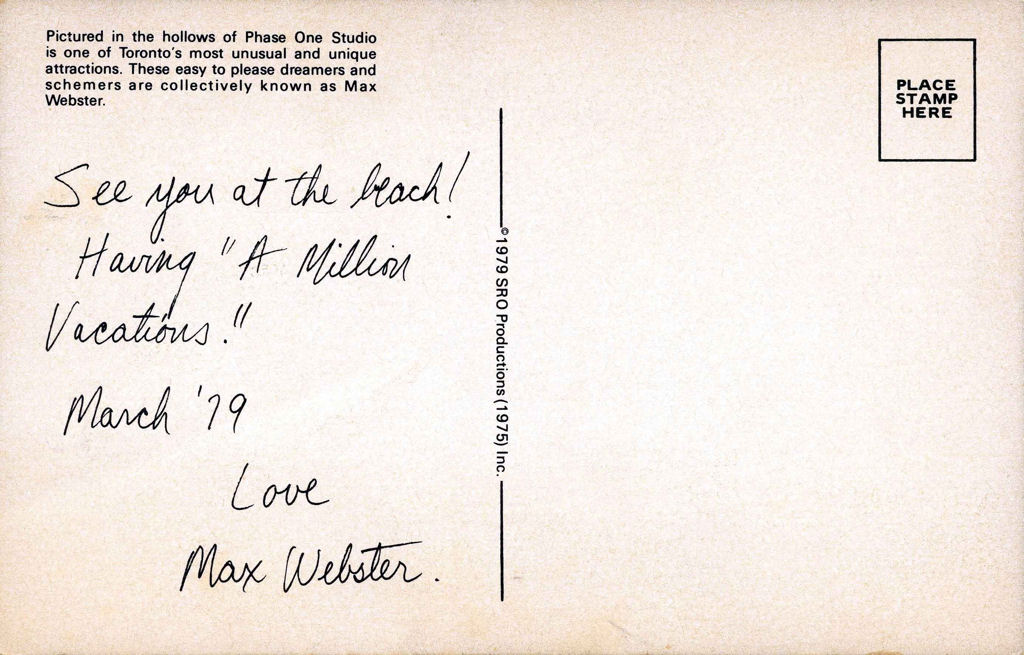 Pictured in the hollows of Phase One Studio
is one of Toronto's most unusual and unique
attractions. These easy to please dreamers and
schemers are collectively known as Max
Webster.
PLACE
STAMP
HERE
See you at the beach!
Having "A Million
Vacations."
March '79
Love
Max Webster.
©1979 SRO Productions (1975) Inc.